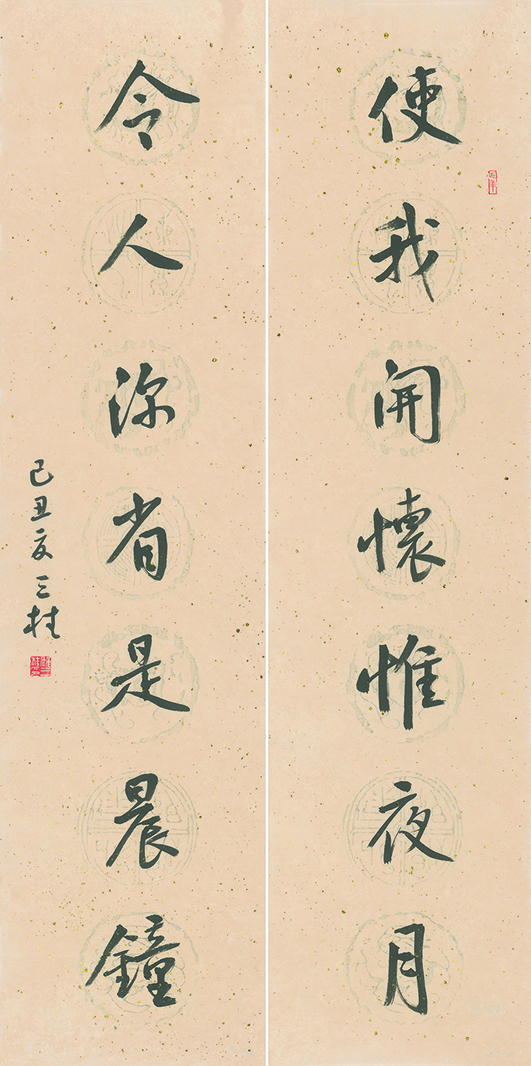 使我開懷惟夜月
令人深省是晨鐘
己丑夏三